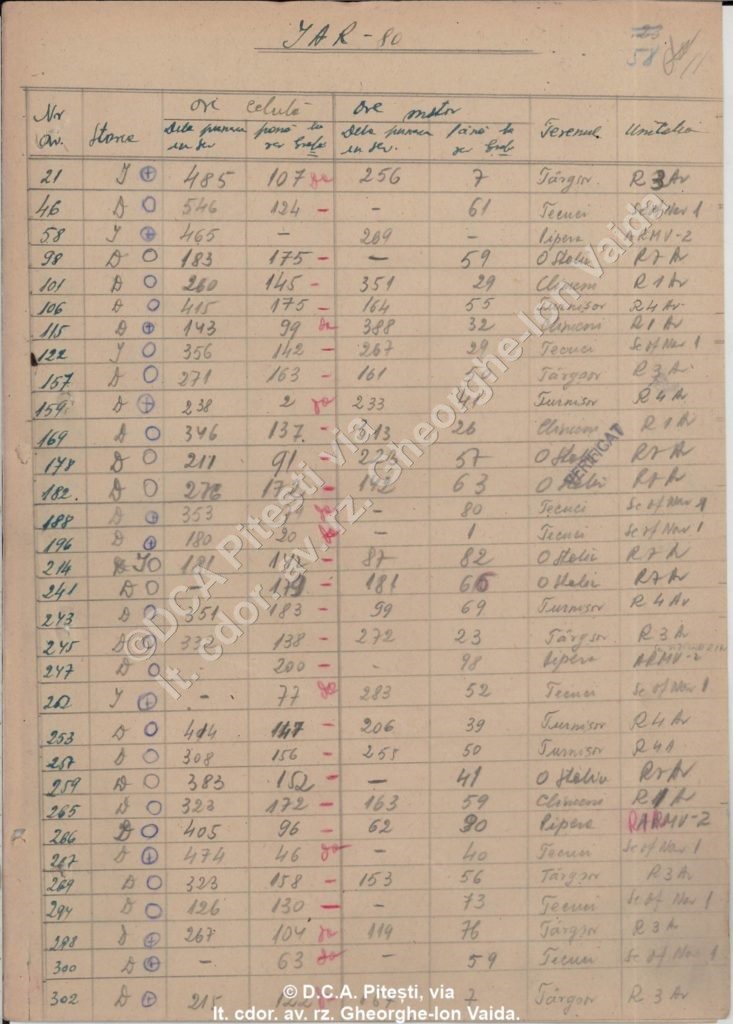 IAR-80
58
Nr av. Starea Ore celulă Ore motor Terenul Unitatea
Dela punere in ser până la rev Dela punere in ser. până la rev
21 I ⊕ 485 107 da 256 7 Târgsor R 3 Av
46 D O 546 124 - - 61 Tecuci Sc of Nav 1
58 I ⊕ 465 - 269 - Pipera ARMV-2
98 D O 183 175 - - 59 R 7 Av
101 D O 260 145 - 351 29 Clinceni R 1 Av
106 D O 415 175 - 164 55 R 4 Av
115 D ⊕ 143 99 da 388 32 Clinceni R 1 Av
122 I O 356 142 - 267 29 Tecuci Sc of Nav 1
157 D O 271 163 - 161 Târgsor R 3 Av
159 D ⊕ 238 2 da 233 41 Turnisor R 4 Av
169 D O 346 137 - 313 26 Clinceni R 1 Av
178 D O 211 91 - 57 R 7 Av
182. D O 276 - 63 R 7 Av
188 D ⊕ 353 da - 80 Tecuci Sc of Nav 1
196 D ⊕ 180 20 da - 1 Tecuci Sc of Nav 1
214 I O 181 142 - 87 82 R 7 Av
241 D O - 179 - 181 66 R 7 Av
243 D O 351 183 - 99 69 Turnisor R 4 Av
245 D O 138 - 272 23 Târgsor R 3 Av
247 D O 200 - - 98 Pipera ARMV-2
I ⊕ - 77 da 283 52 Tecuci Sc of Nav 1
253 D O 414 147 - 206 39 Turnisor R 4 Av
257 D O 308 156 - 255 50 Turnisor R 4 A
259 D O 383 152 - - 41 R 7 Av
265 D O 323 172 - 163 59 Clinceni R 1 Av
266 D O 405 96 - 62 90 Pipera ARMV-2
267 D ⊕ 474 46 da - 40 Tecuci Sc of Nav 1
269 D O 323 158 - 153 56 Târgsor R 3 Av
294 D O 126 130 - - 73 Tecuci Sc of Nav 1
298 D ⊕ 267 104 da 119 76 Târgsor R 3 Av
300 D ⊕ - 63 da - 59 Tecuci Sc of Nav 1
302 D O 215 7 Târgsor R 3 Av
VERIFICAT
©DCA Pitesti via
lt. cdor. av. rz. Gheorghe-Ion Vaida
© D.C.A. Pitești, via
lt. cdor. av. rz. Gheorghe-Ion Vaida.